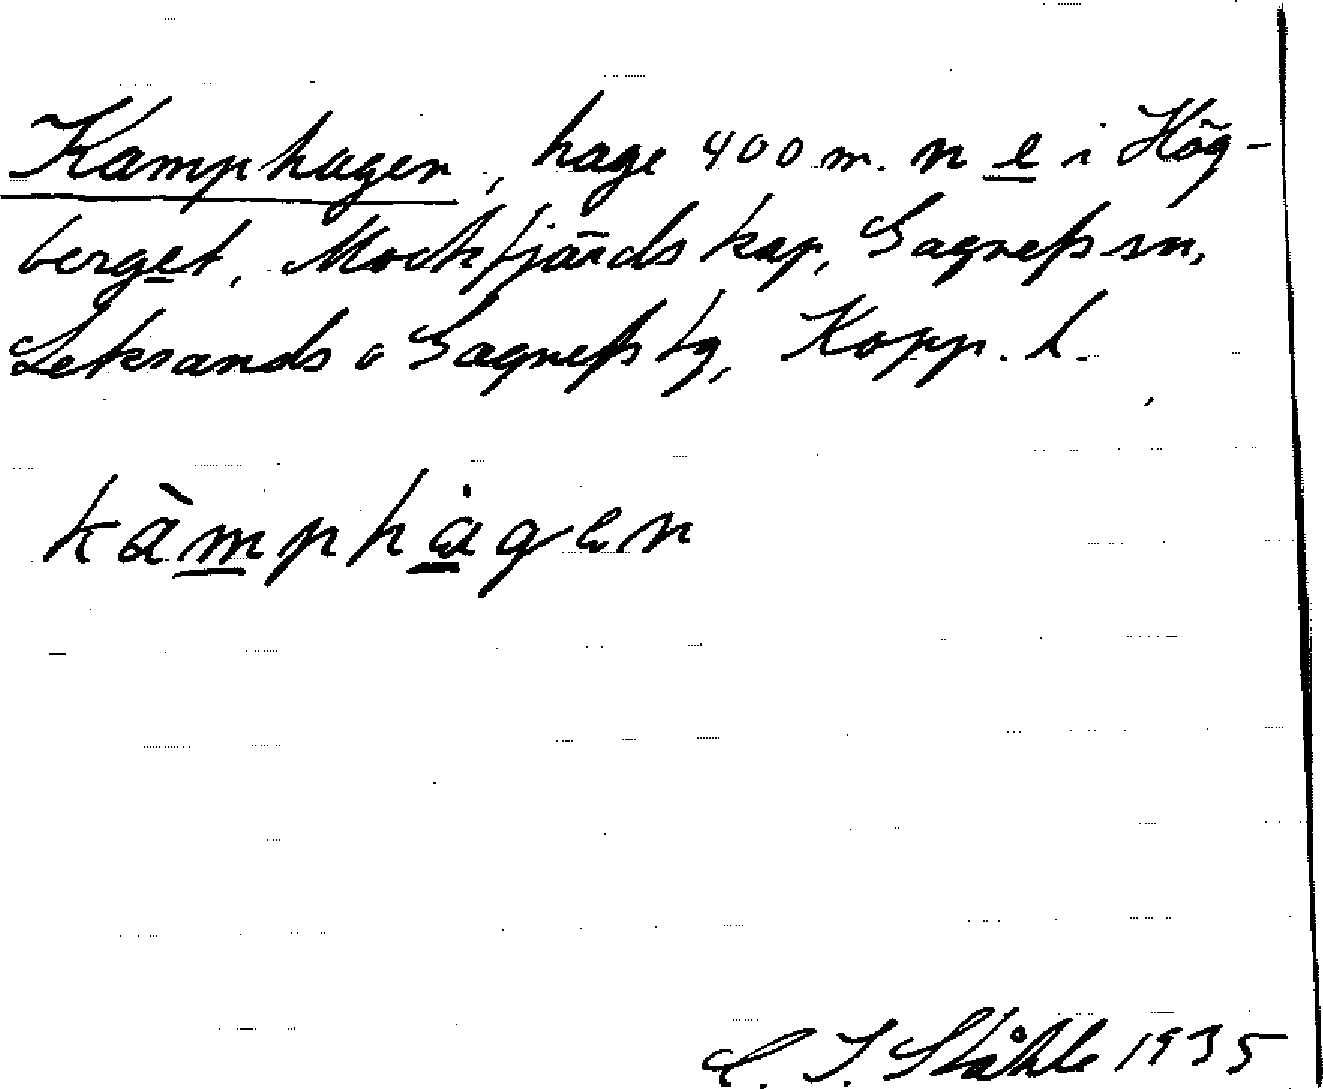 Kamphagen, hage 400 m. n e i Hög-
berget, Mockfjärds kap, Gagnefs sn,
Leksands o Gagnefs tg, Kopp. l.
kàmphȧgen
C. I. Ståhle 1935